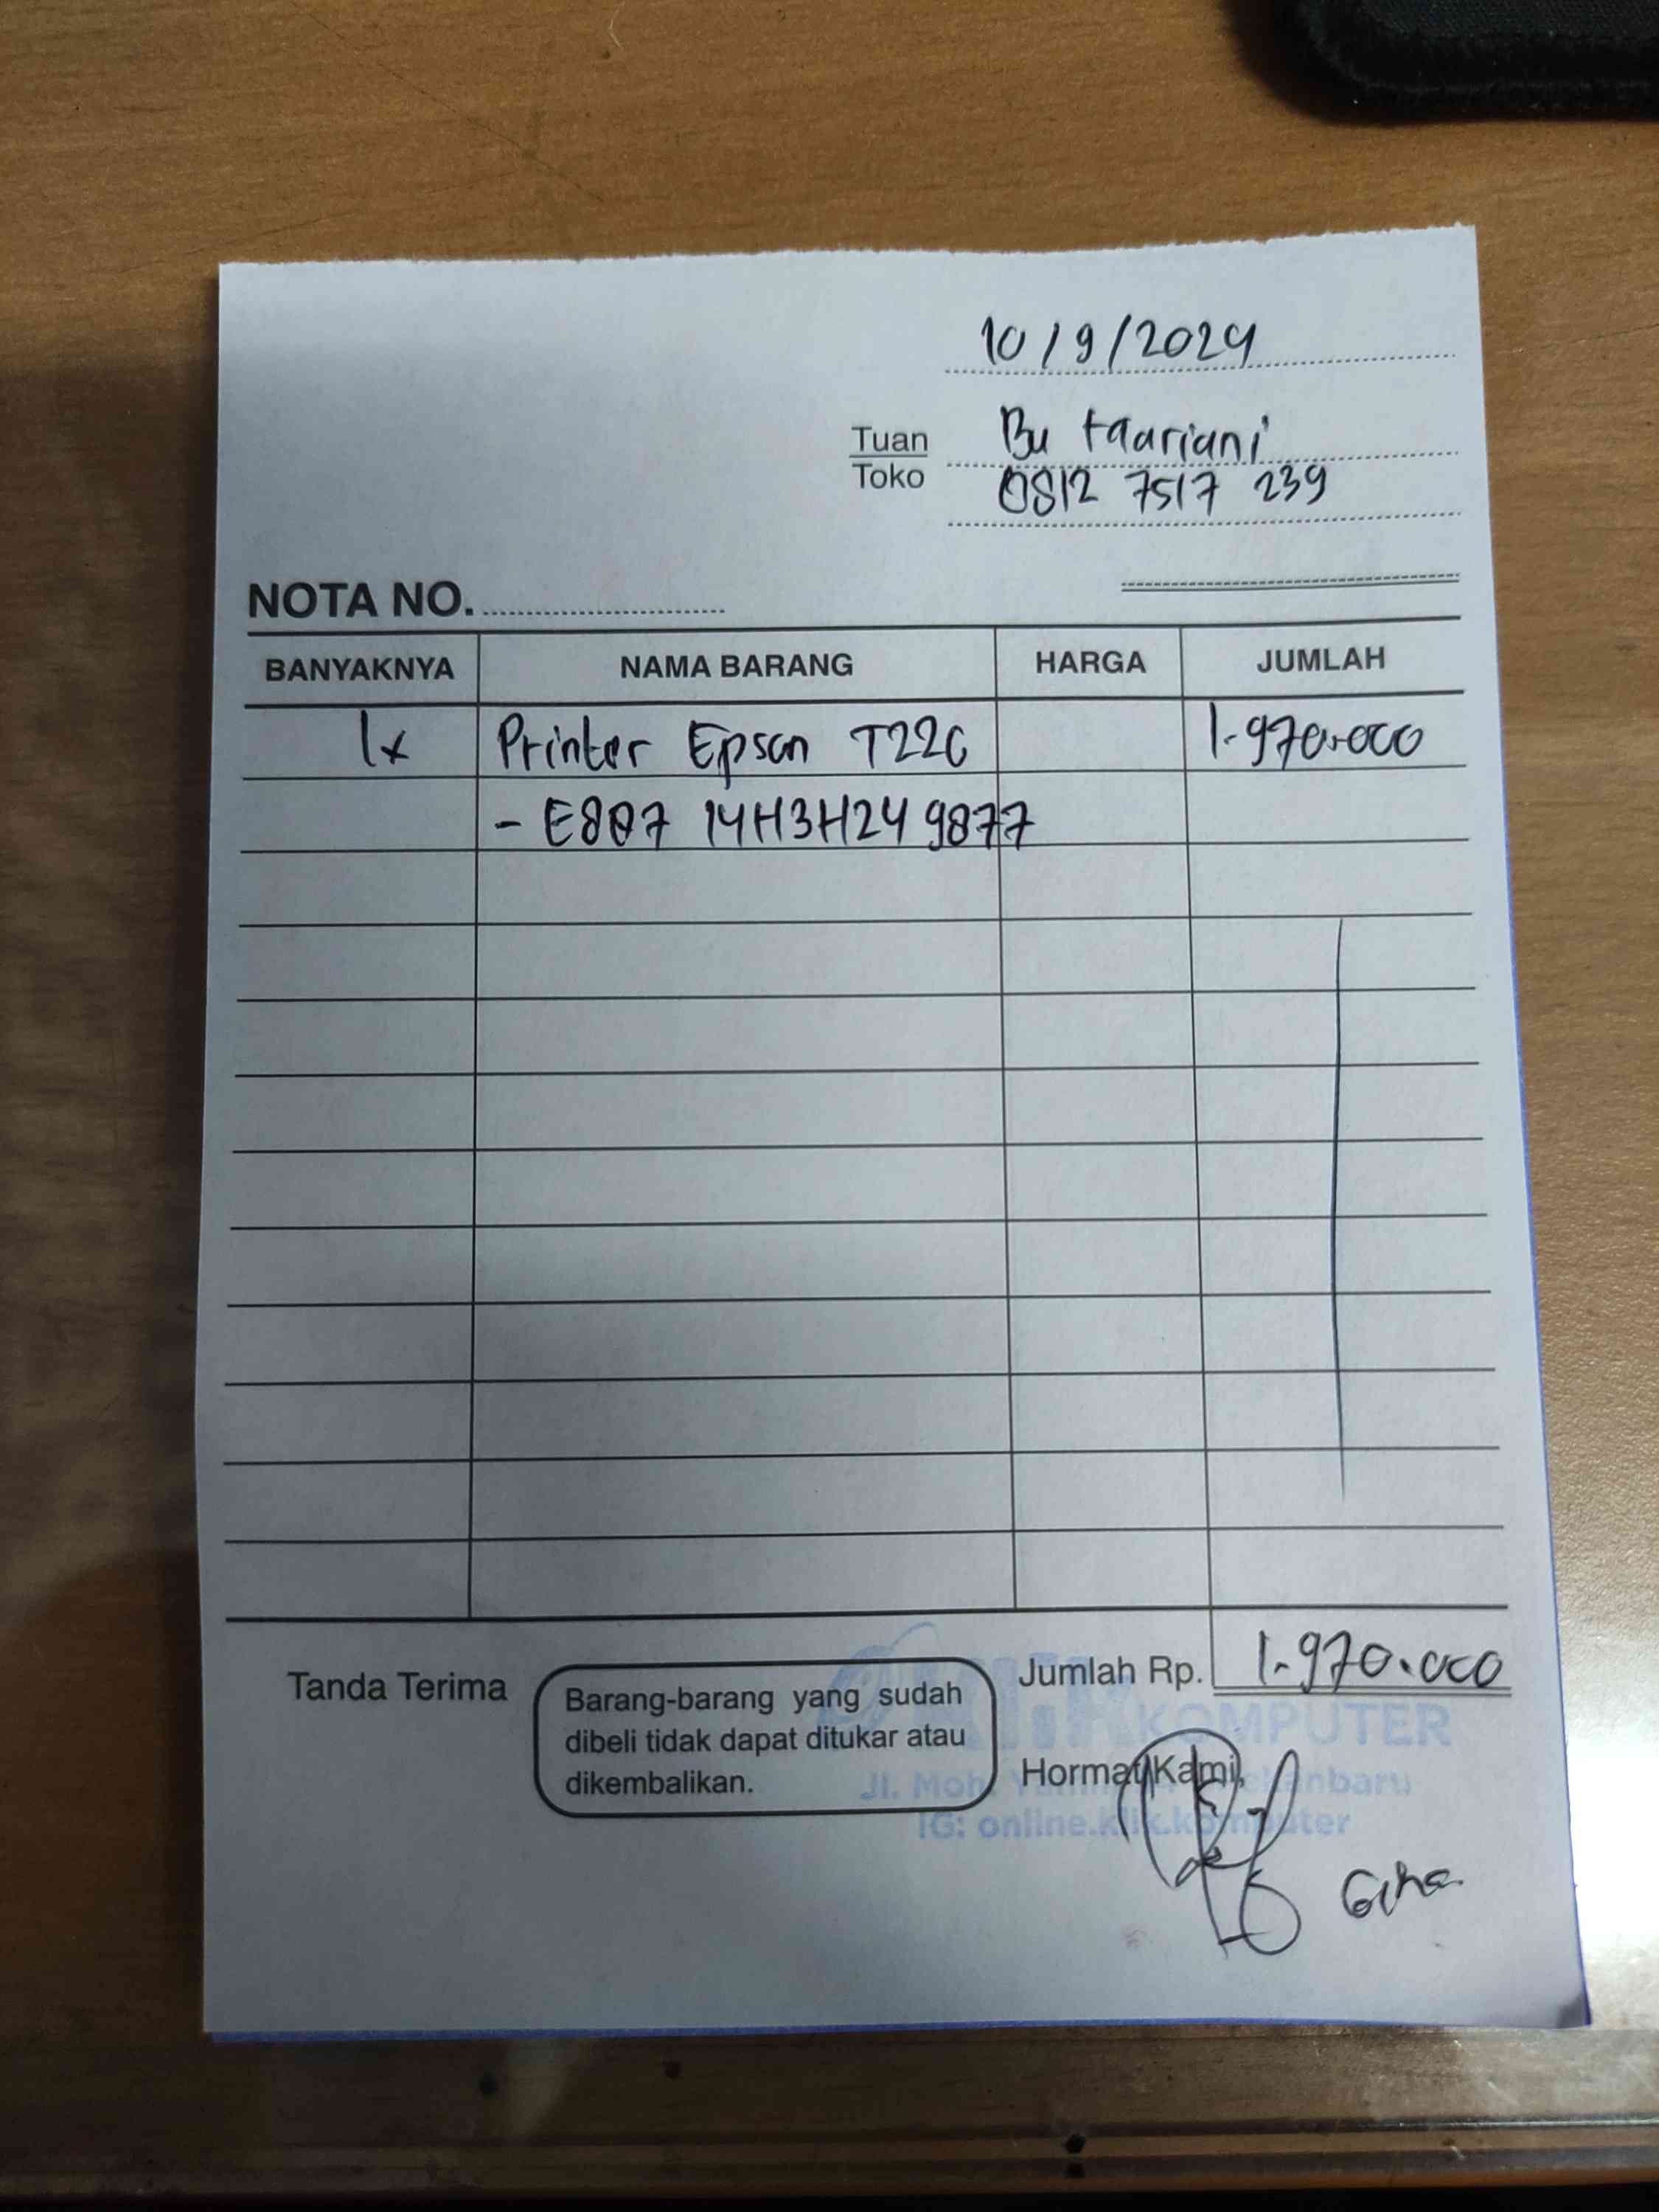 10/9/2024
Tuan
Toko
Bu Haariani
0812 7517 239
NOTA NO.
BANYAKNYA NAMA BARANG HARGA JUMLAH
1x Printer Epson T220 1.970.000
- E807 14H3H24 9877
Tanda Terima
Barang-barang yang sudah
dibeli tidak dapat ditukar atau
dikembalikan.
Jumlah Rp. 1.970.000
KOMPUTER
Hormat Kami,
Jl. Moh. Pekanbaru
IG: online.klik.komputer